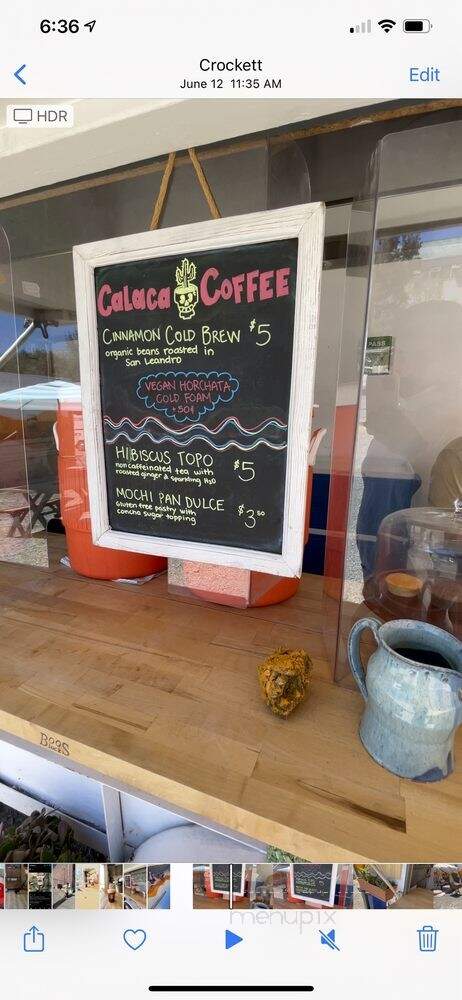 6:36
Crockett
June 12 11:35 AM
Edit
HDR
CaLaca COFFEE
CINNAMON COLD BREW $5
organic beans roasted in
San Leandro
VEGAN HORCHATA
COLD FOAM
+50¢
HIBISCUS TOPO $5
non caffeinated tea with
roasted ginger & sparkling H2O
MOCHI PAN DULCE $3.50
Gluten free pastry with
concha sugar topping
PASS
BOOS
menupix